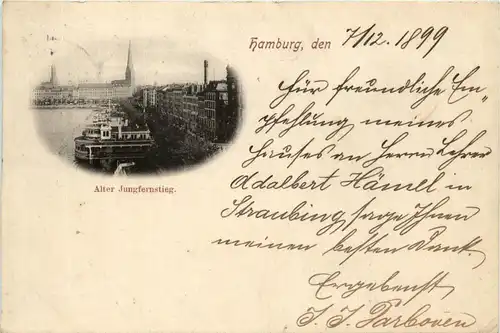 Hamburg, den 7/12. 1899
Für freundliche Em=
pfehlung meines
Hauses an Herrn Lehrer
Adalbert Hämel in
Straubing, sage Ihnen
meinen besten Dank.
Ergebenst
J. J. Darboven
Alter Jungfernstieg.